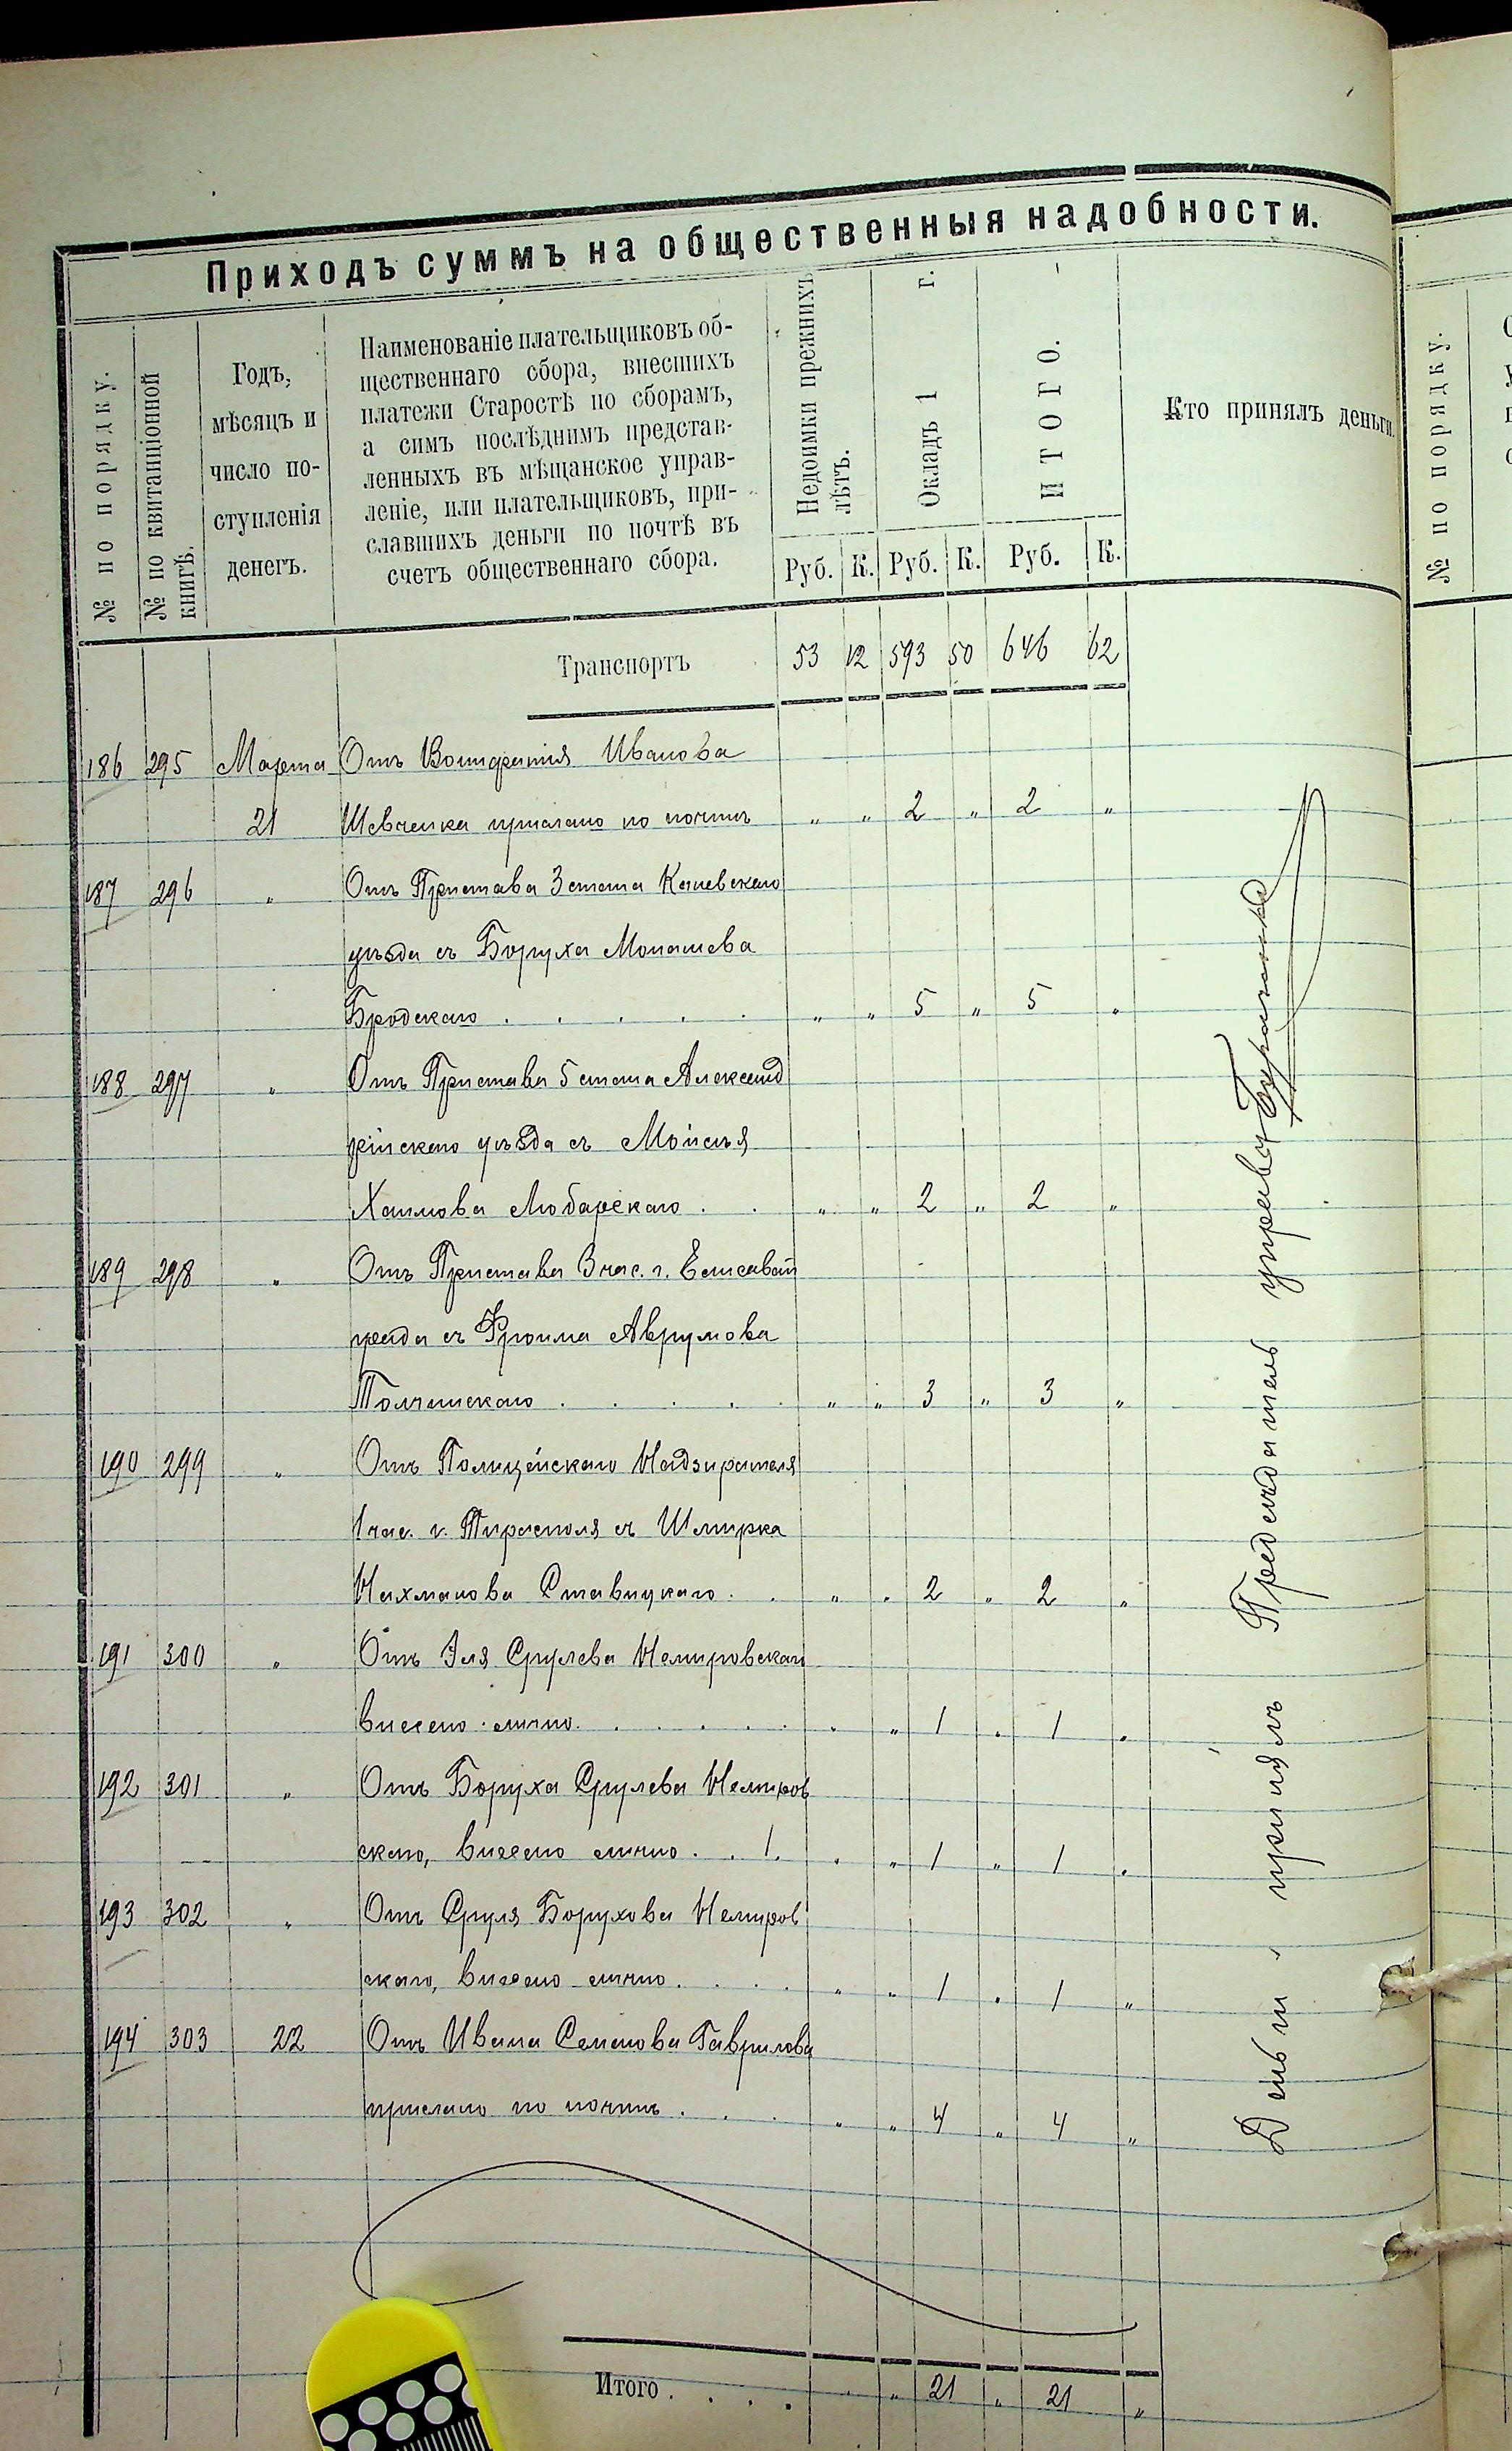 Приходъ суммъ на общественныя надобности.
№ по порядку.
№ по квитанціонной книгѣ.
Годъ, мѣсяцъ и число поступленія денегъ.
Наименованіе плательщиковъ об-
щественнаго сбора, внесшихъ
платежи Старостѣ по сборамъ,
а симъ послѣднимъ представ-
ленныхъ въ мѣщанское управ-
леніе, или плательщиковъ, при-
славшихъ деньги по почтѣ въ
счетъ общественнаго сбора.
Недоимки прежнихъ лѣтъ.
Окладъ 1 г.
ИТОГО.
Кто принялъ деньги.
Руб. К. Руб. К. Руб. К.
Транспортъ 53 12 593 50 646 62
186 295 Марта Отъ Иванова
21 Шевченка прислано по почтѣ " " 2 " 2 "
187 296 " Отъ Пристава 3 стана Каневскаго
уѣзда съ Боруха Монашева
Бродскаго . . . . . " " 5 " 5 "
188 297 " Отъ Пристава 5 стана Александ
рійскаго уѣзда съ Мойсѣя
Хаимова Любарскаго . . " " 2 " 2 "
189 298 " Отъ Пристава 3 час. г. Елисавет
града съ Фроима Аврумова
Толчинскаго . . . . . " " 3 " 3 "
190 299 " Отъ Полицейскаго Надзирателя
1 час. г. Тирасполя съ Шмирка
Нахманова Ставицкаго . . " " 2 " 2 "
191 300 " Отъ Эля Срулева Немировскаго
внесено лично . . . . . " " 1 " 1 "
192 301 " Отъ Боруха Срулева Немиров
скаго, внесено лично . . 1. " " 1 " 1 "
193 302 " Отъ Сруля Борухова Немиров
скаго, внесено лично . . . . " " 1 " 1 "
194 303 22 Отъ Ивана Семенова Гаврилова
прислано по почтѣ . . . " " 4 " 4 "
Итого . . . . " 21 " 21 "
Деньги принялъ Предсѣдатель управы
№ по порядку.